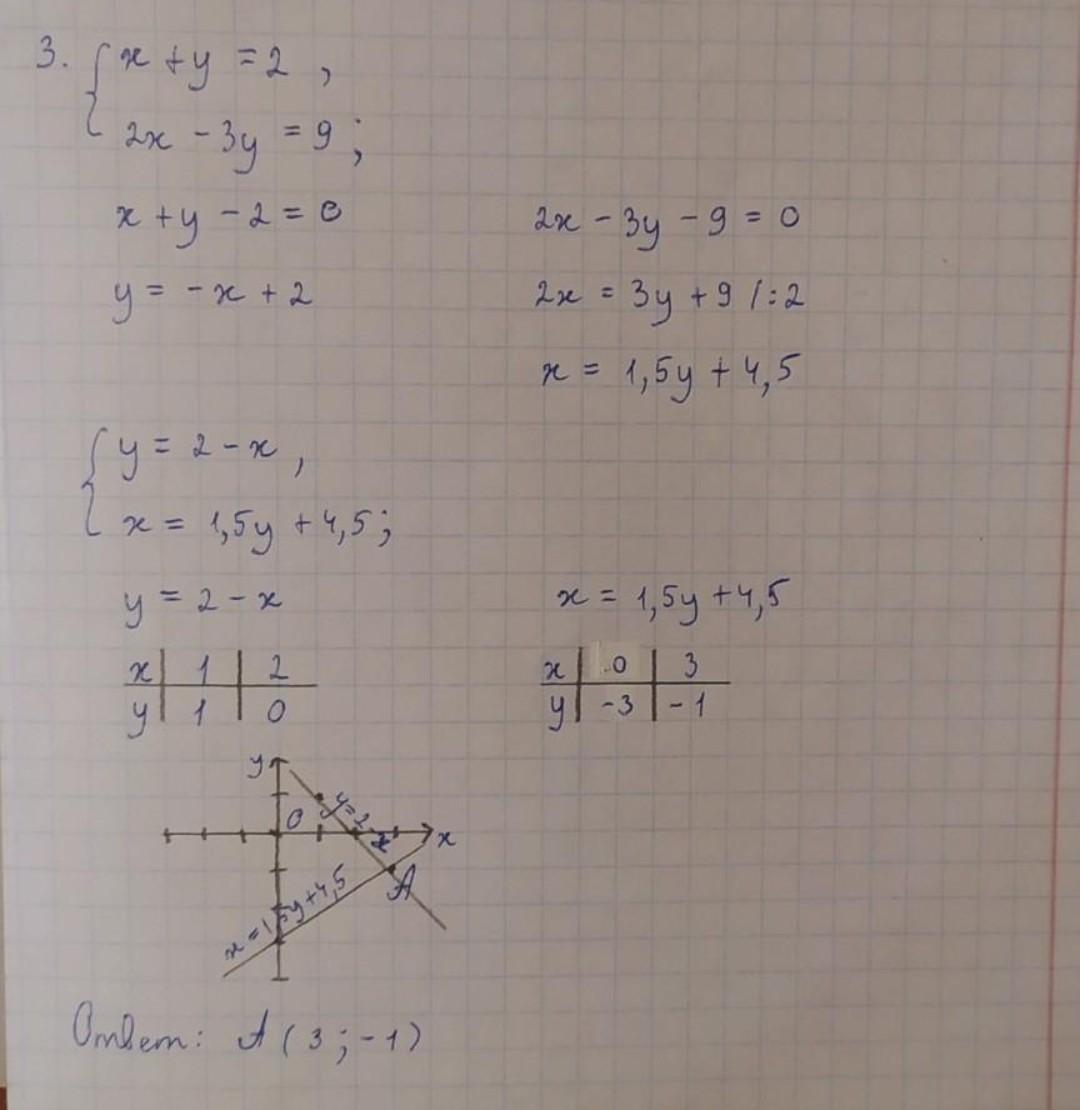 3. { x + y = 2 ,
2x - 3y = 9 ;
x + y - 2 = 0
2x - 3y - 9 = 0
y = - x + 2
2x = 3y + 9 /:2
x = 1,5y + 4,5
{ y = 2 - x ,
x = 1,5y + 4,5 ;
y = 2 - x
x = 1,5y + 4,5
x | 1 | 2
y | 1 | 0
x | 0 | 3
y | -3 | -1
y
0
y = 2 - x
x
A
x = 1,5y + 4,5
Ответ: A ( 3 ; -1 )